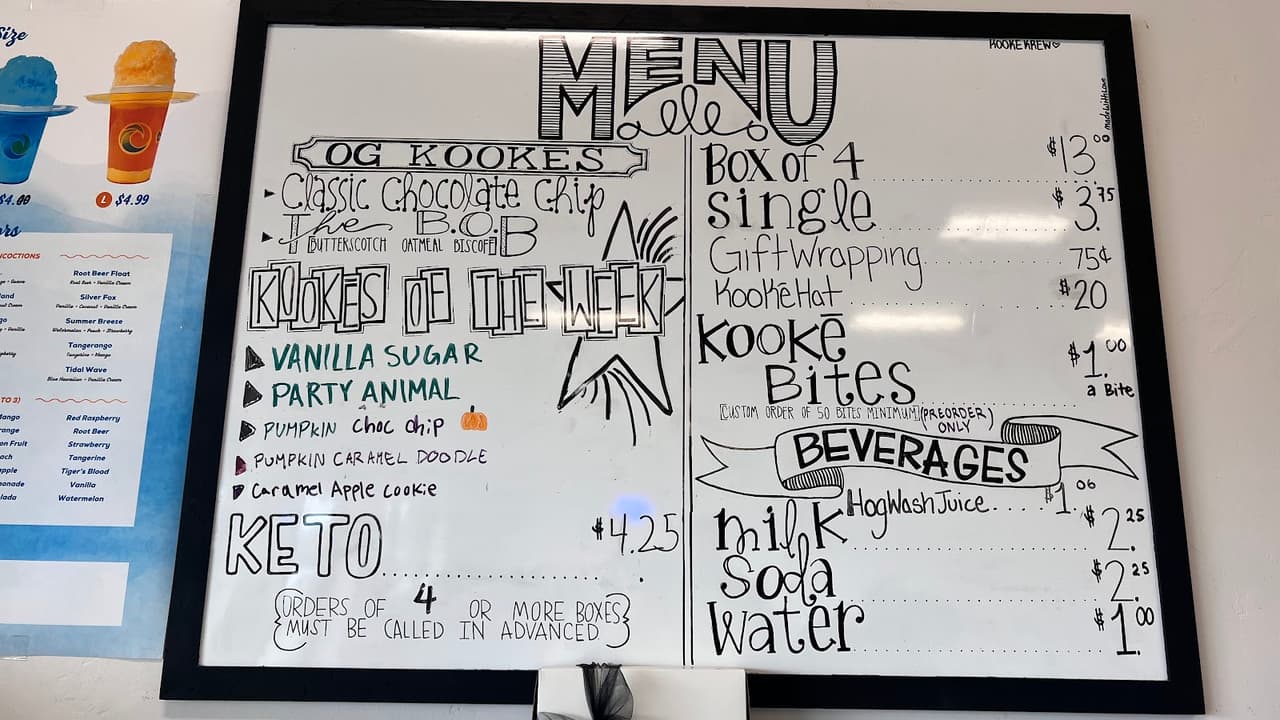 Size
$4.99
L $4.99
Root Beer Float
Root Beer • Vanilla Cream
Silver Fox
Vanilla • Coconut • Vanilla Cream
Summer Breeze
Watermelon • Peach • Strawberry
Tangerango
Tangerine • Mango
Tidal Wave
Blue Hawaiian • Vanilla Cream
TO 3)
Red Raspberry
Root Beer
Strawberry
Tangerine
Tiger's Blood
Vanilla
Watermelon
MENU
KOOKE KREW
made with love
OG KOOKES
Classic Chocolate Chip
The B.O.B
[BUTTERSCOTCH OATMEAL BISCOFF]
KOOKES OF THE WEEK
VANILLA SUGAR
PARTY ANIMAL
PUMPKIN choc chip
PUMPKIN CARAMEL DOODLE
Caramel Apple cookie
KETO $4.25
{ORDERS OF 4 OR MORE BOXES
MUST BE CALLED IN ADVANCED}
Box of 4 $13.00
single $3.75
Gift Wrapping 75¢
Kookē Hat $20
Kookē
Bites $1.00
a Bite
[CUSTOM ORDER OF 50 BITES MINIMUM] (PREORDER
ONLY)
BEVERAGES
HogWash Juice.... $1.06
milk $2.25
Soda $2.25
Water $1.00